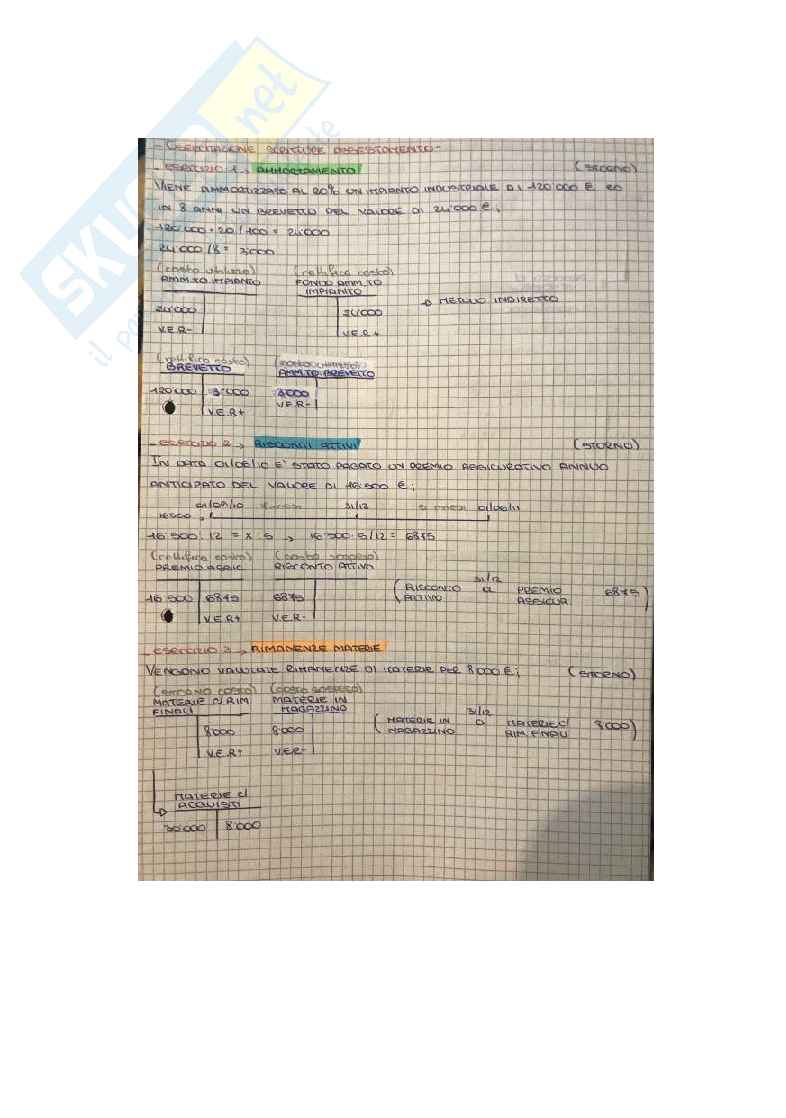 SKUOLA.net
- ESERCITAZIONE SCRITTURE ASSESTAMENTO -
- ESERCIZIO 1 → AMMORTAMENTO (STORNO)
VIENE AMMORTIZZATO AL 20% UN IMPIANTO INDUSTRIALE DI 120'000 € ED
IN 8 ANNI UN BREVETTO DEL VALORE DI 24'000 €;
120'000 · 20 / 100 = 24'000
24'000 / 8 = 3'000
(costo utilizzo) (rettifica costo)
AMM.TO IMPIANTO FONDO AMM.TO
IMPIANTO
24'000 24'000 → METODO INDIRETTO
V.E.R- V.E.R+
(rettifica costo)
BREVETTO AMM.TO BREVETTO
120'000 3'000 3000
V.E.R+ V.E.R-
- ESERCIZIO 2 → RISCONTI ATTIVI (STORNO)
IN DATA 01/06/ È STATO PAGATO UN PREMIO ASSICURATIVO ANNUO
ANTICIPATO DEL VALORE DI 16'500 €;
31/12
16500
16'500 : 12 = x : 5 → 16'500 · 5/12 = 6875
(rettifica costo) (costo sospeso)
PREMIO ASSIC RISCONTO ATTIVO
16'500 6875 6875
V.E.R+ V.E.R-
(RISCONTO ATTIVO 31/12 a PREMIO ASSICUR 6875)
- ESERCIZIO 3 → RIMANENZE MATERIE
VENGONO VALUTATE RIMANENZE DI MATERIE PER 8'000 €; (STORNO)
(storno costo) (costo sospeso)
MATERIE C/RIM MATERIE IN
FINALI MAGAZZINO
8'000 8'000
V.E.R+ V.E.R-
(MATERIE IN MAGAZZINO 31/12 a MATERIE C/ RIM. FINALI 8'000)
MATERIE C/
ACQUISTI
30'000 8'000